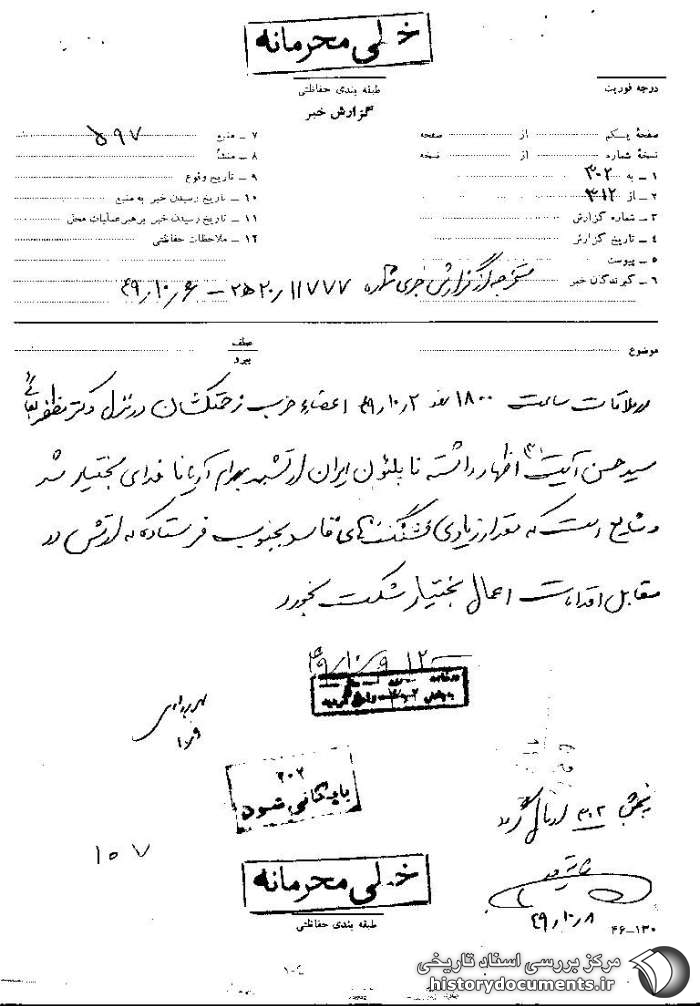 خیلی محرمانه
طبقه بندی حفاظتی
درجه فوریت
گزارش خبر
صفحهٔ یکم از صفحه
نسخهٔ شماره از نسخه
۱ - به ۳۰۲
۲ - از ۳۱۲
۳ - شماره گزارش
۴ - تاریخ گزارش
۵ - پیوست
۶ - گیرندگان خبر
۷ - منبع ۵۹۷
۸ - منشأ
۹ - تاریخ وقوع
۱۰ - تاریخ رسیدن خبر به منبع
۱۱ - تاریخ رسیدن خبر برهبر عملیات محل
۱۲ - ملاحظات حفاظتی
مستخرجه از گزارش خبری شماره ۲۵۲۰/۱۱۷۷۷ - ۴۹/۱۰/۶
موضوع
عطف
پیرو
در ملاقات ساعت ۱۸۰۰ ۴۹/۱۰/۲ اعضاء حزب زحمتکشان در منزل دکتر مظفر بقائی
سید حسن آیت اظهار داشته ناپلئون ایران ارتشبد بهرام آریانا فدای بختیار شد
و شایع است که مقدار زیادی فشنگ های فاسد بجنوب فرستاده که ارتش در
مقابل اقدامات اعمال بختیار شکست بخورد
۴۹/۱۰/۹
۳۰۲
بایگانی شود
۱۰۷
بخش ۳۰۲ ارسال گردد
۴۹/۱۰/۸
خیلی محرمانه
طبقه بندی حفاظتی
۴۶-۱۳۰
مرکز بررسی اسناد تاریخی
historydocuments.ir